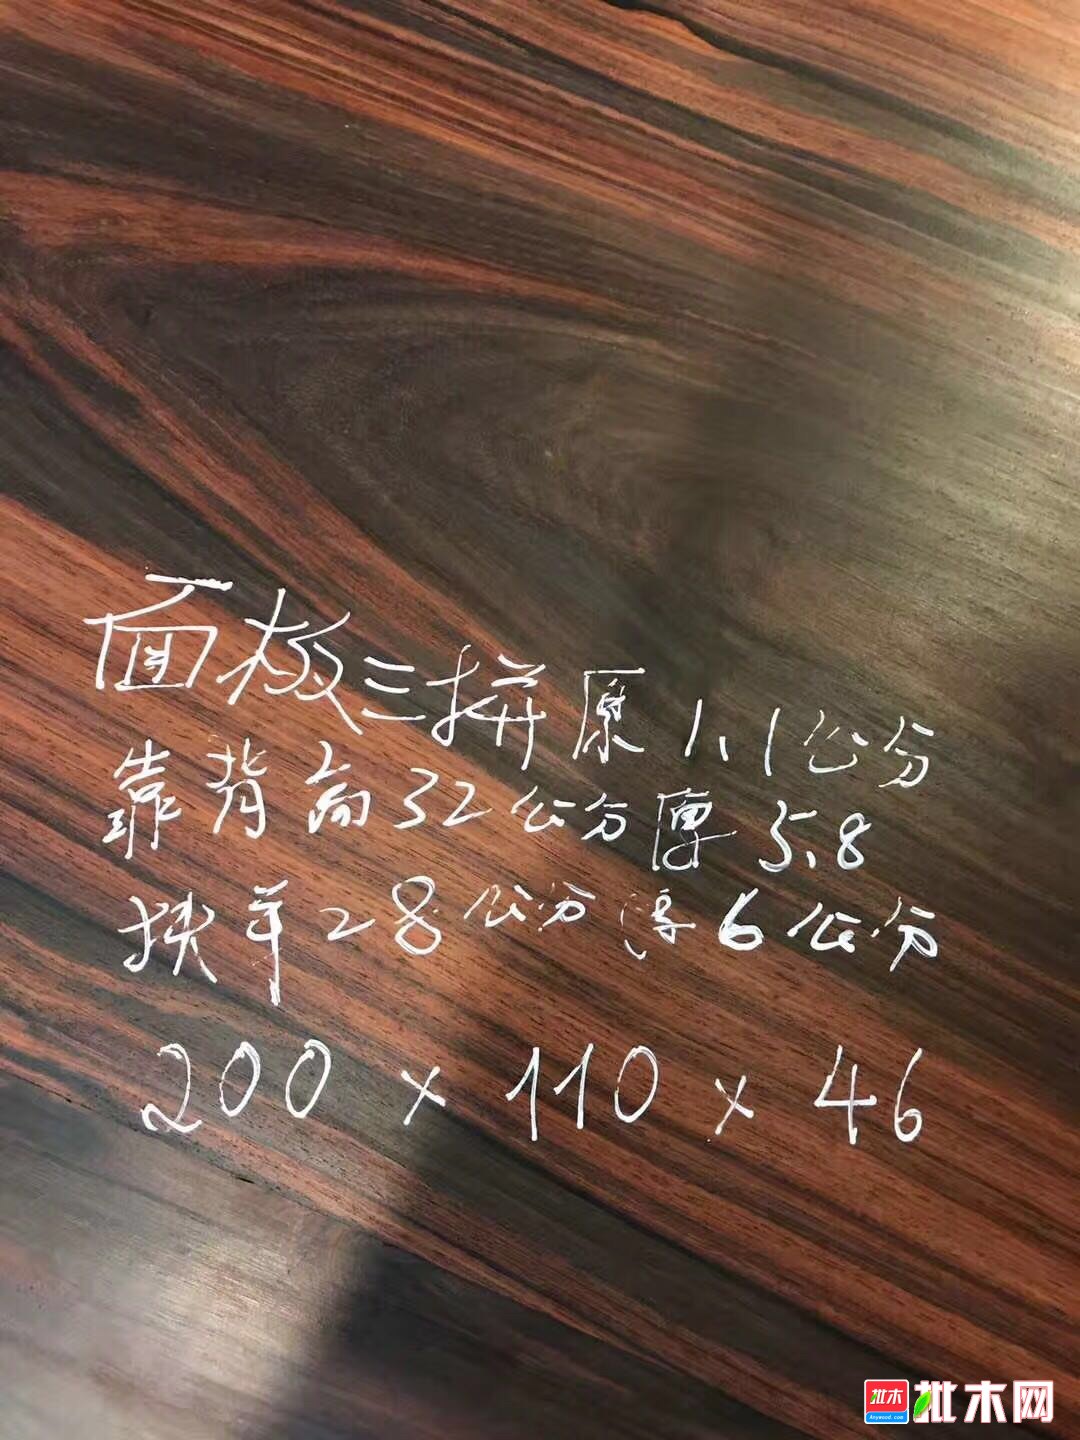 面板三拼厚1.1公分
靠背高32公分厚5.8
扶手28公分厚6公分
200×110×46
批木
Anywood.com
批木网